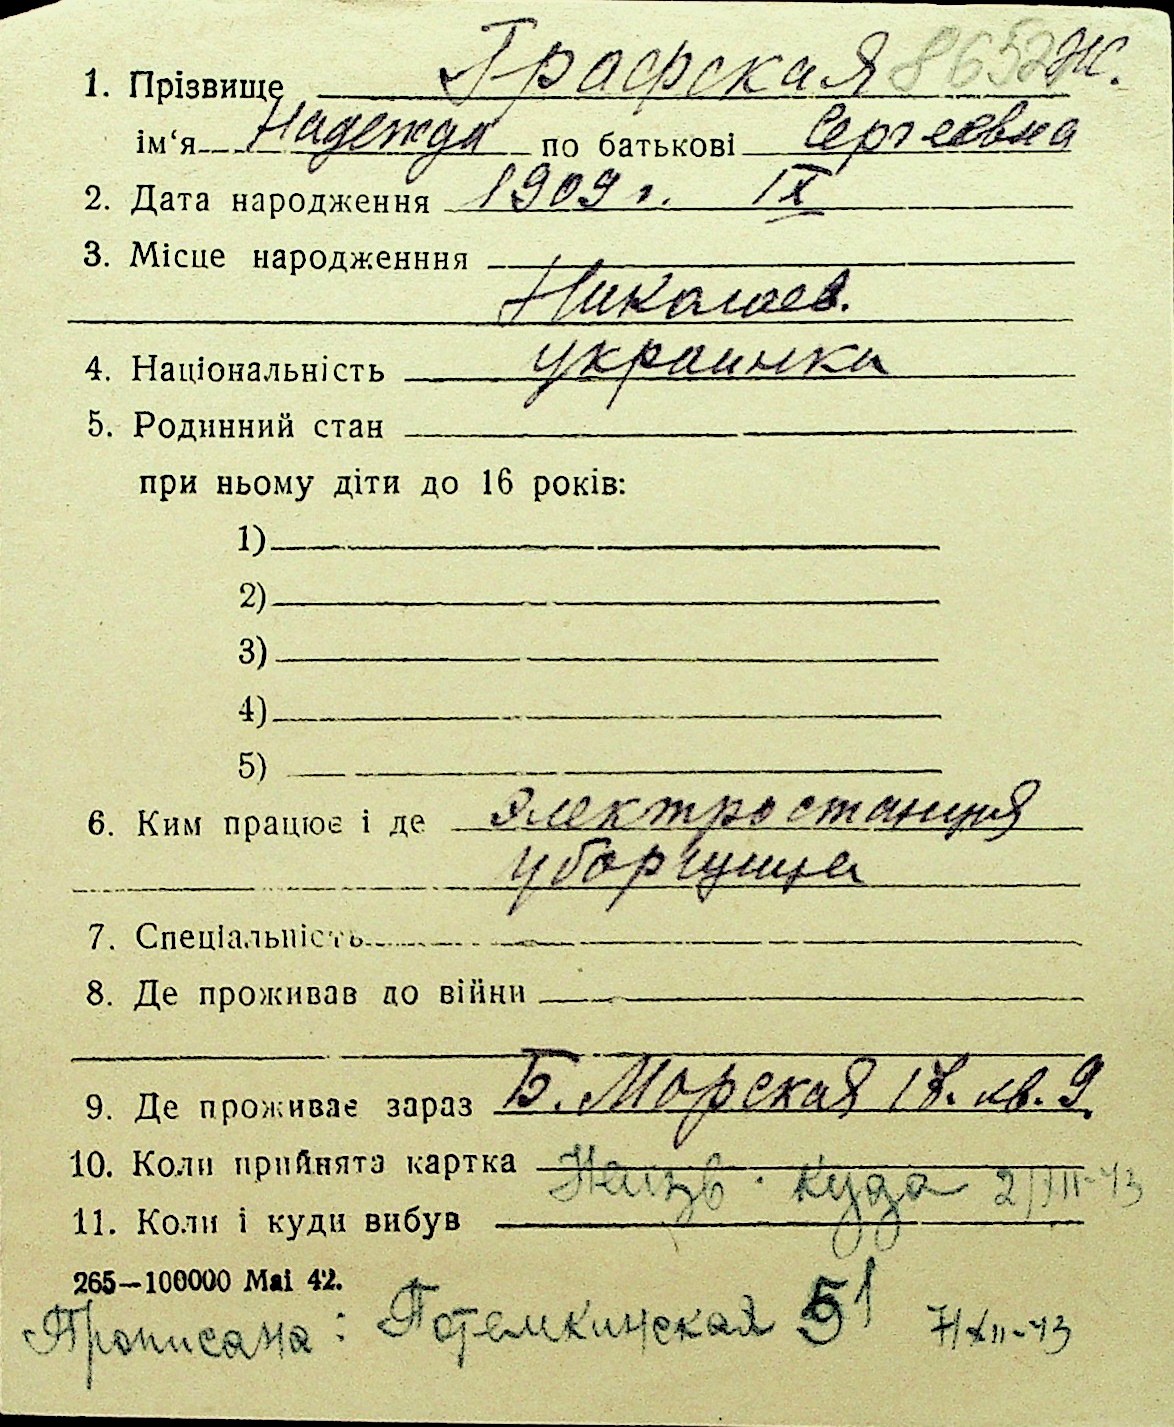 1. Прізвище Графская 8652 Ж.
ім‘я Надежда по батькові Сергеевна
2. Дата народження 1909 г. IX
3. Місце народженння
Николаев.
4. Національність украинка
5. Родинний стан
при ньому діти до 16 років:
1)
2)
3)
4)
5)
6. Ким працює і де электростанция
уборщица
7. Спеціальність
8. Де проживав до війни
9. Де проживає зараз Б. Морская кв. 9
10. Коли прийнята картка
Неизв. куда 2/XII-43
11. Коли і куди вибув
265—100000 Mai 42.
Прописана: Потемкинская 51 7/XII-43